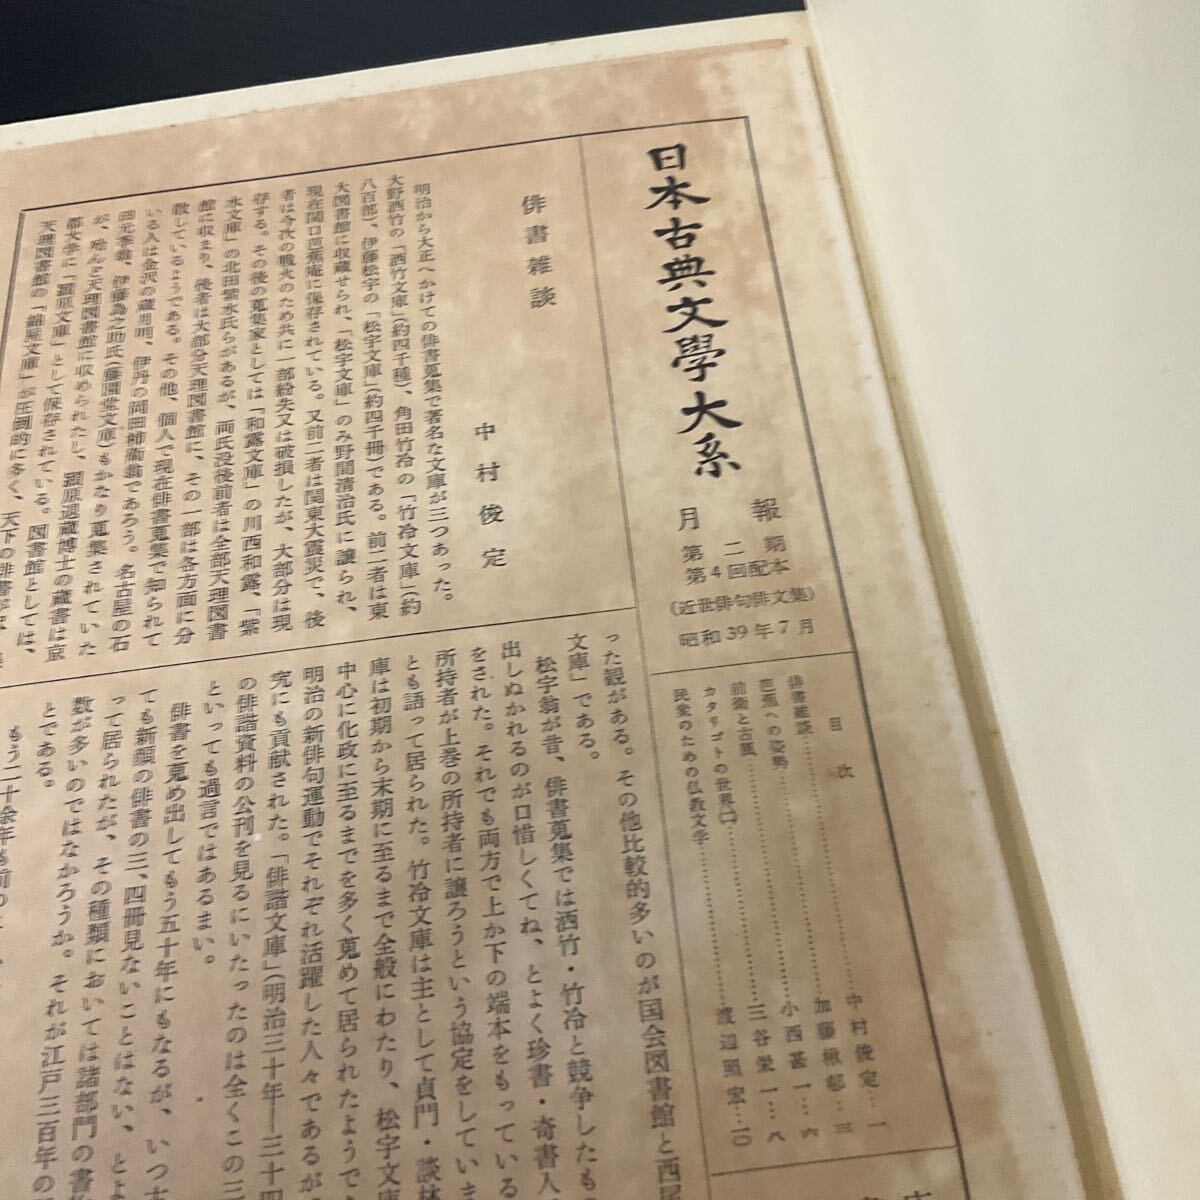 日本古典文學大系
月報
第二期
第4回配本
(近世俳句俳文集)
昭和39年7月
目次
俳書雑談……中村俊定…一
芭蕉への姿勢……加藤楸邨…三
前衛と古風……小西甚一…六
カタリゴトの世界(二)……三谷栄一…八
民衆のための仏教文学……渡辺照宏…一〇
俳書雑談
中村俊定
明治から大正へかけての俳書蒐集で著名な文庫が三つあった。
大野洒竹の「洒竹文庫」(約四千種)、角田竹冷の「竹冷文庫」(約
八百部)、伊藤松宇の「松宇文庫」(約四千冊)である。前二者は東
大図書館に収蔵せられ、「松宇文庫」のみ野間清治氏に譲られ、
現在関口芭蕉庵に保存されている。又前二者は関東大震災で、後
者は今次の戦火のため共に一部紛失又は破損したが、大部分は現
存する。その後の蒐集家としては「和露文庫」の川西和露、「紫
水文庫」の北田紫水氏らがあるが、両氏没後前者は全部天理図書
館に収まり、後者は大部分天理図書館に、その一部は各方面に分
散しているようである。その他、個人で現在俳書蒐集で知られて
いる人は金沢の蔵月明、伊丹の岡田柿衞翁であろう。名古屋の石
田元季翁、伊藤為之助氏(藤園堂文庫)もかなり蒐集されていた
が、殆んど天理図書館に収められたし、潁原退蔵博士の蔵書は京
都大学に「潁原文庫」として保存されている。図書館としては、
天理図書館の「綿屋文庫」が圧倒的に多く、天下の俳書が
った観がある。その他比較的多いのが国会図書館と
文庫」である。
松宇翁が昔、俳書蒐集では洒竹・竹冷と競争したも
出しぬかれるのが口惜しくてね、とよく珍書・奇書入
をされた。それでも両方で上か下の端本をもっている
所持者が上巻の所持者に譲ろうという協定をしていま
とも語って居られた。竹冷文庫は主として貞門・談林
庫は初期から末期に至るまで全般にわたり、松宇文庫
中心に化政に至るまでを多く蒐めて居られたようで
明治の新俳句運動でそれぞれ活躍した人々であるが
究にも貢献された。「俳諧文庫」(明治三十年―三十四
の俳諧資料の公刊を見るにいたったのは全くこの三
といっても過言ではあるまい。
俳書を蒐め出してもう五十年にもなるが、いつ
ても新顔の俳書の三、四冊見ないことはない、とよ
って居られたが、その種類においては諸部門の書
数が多いのではなかろうか。それが江戸三百年の
とである。
もう二十余年も前の